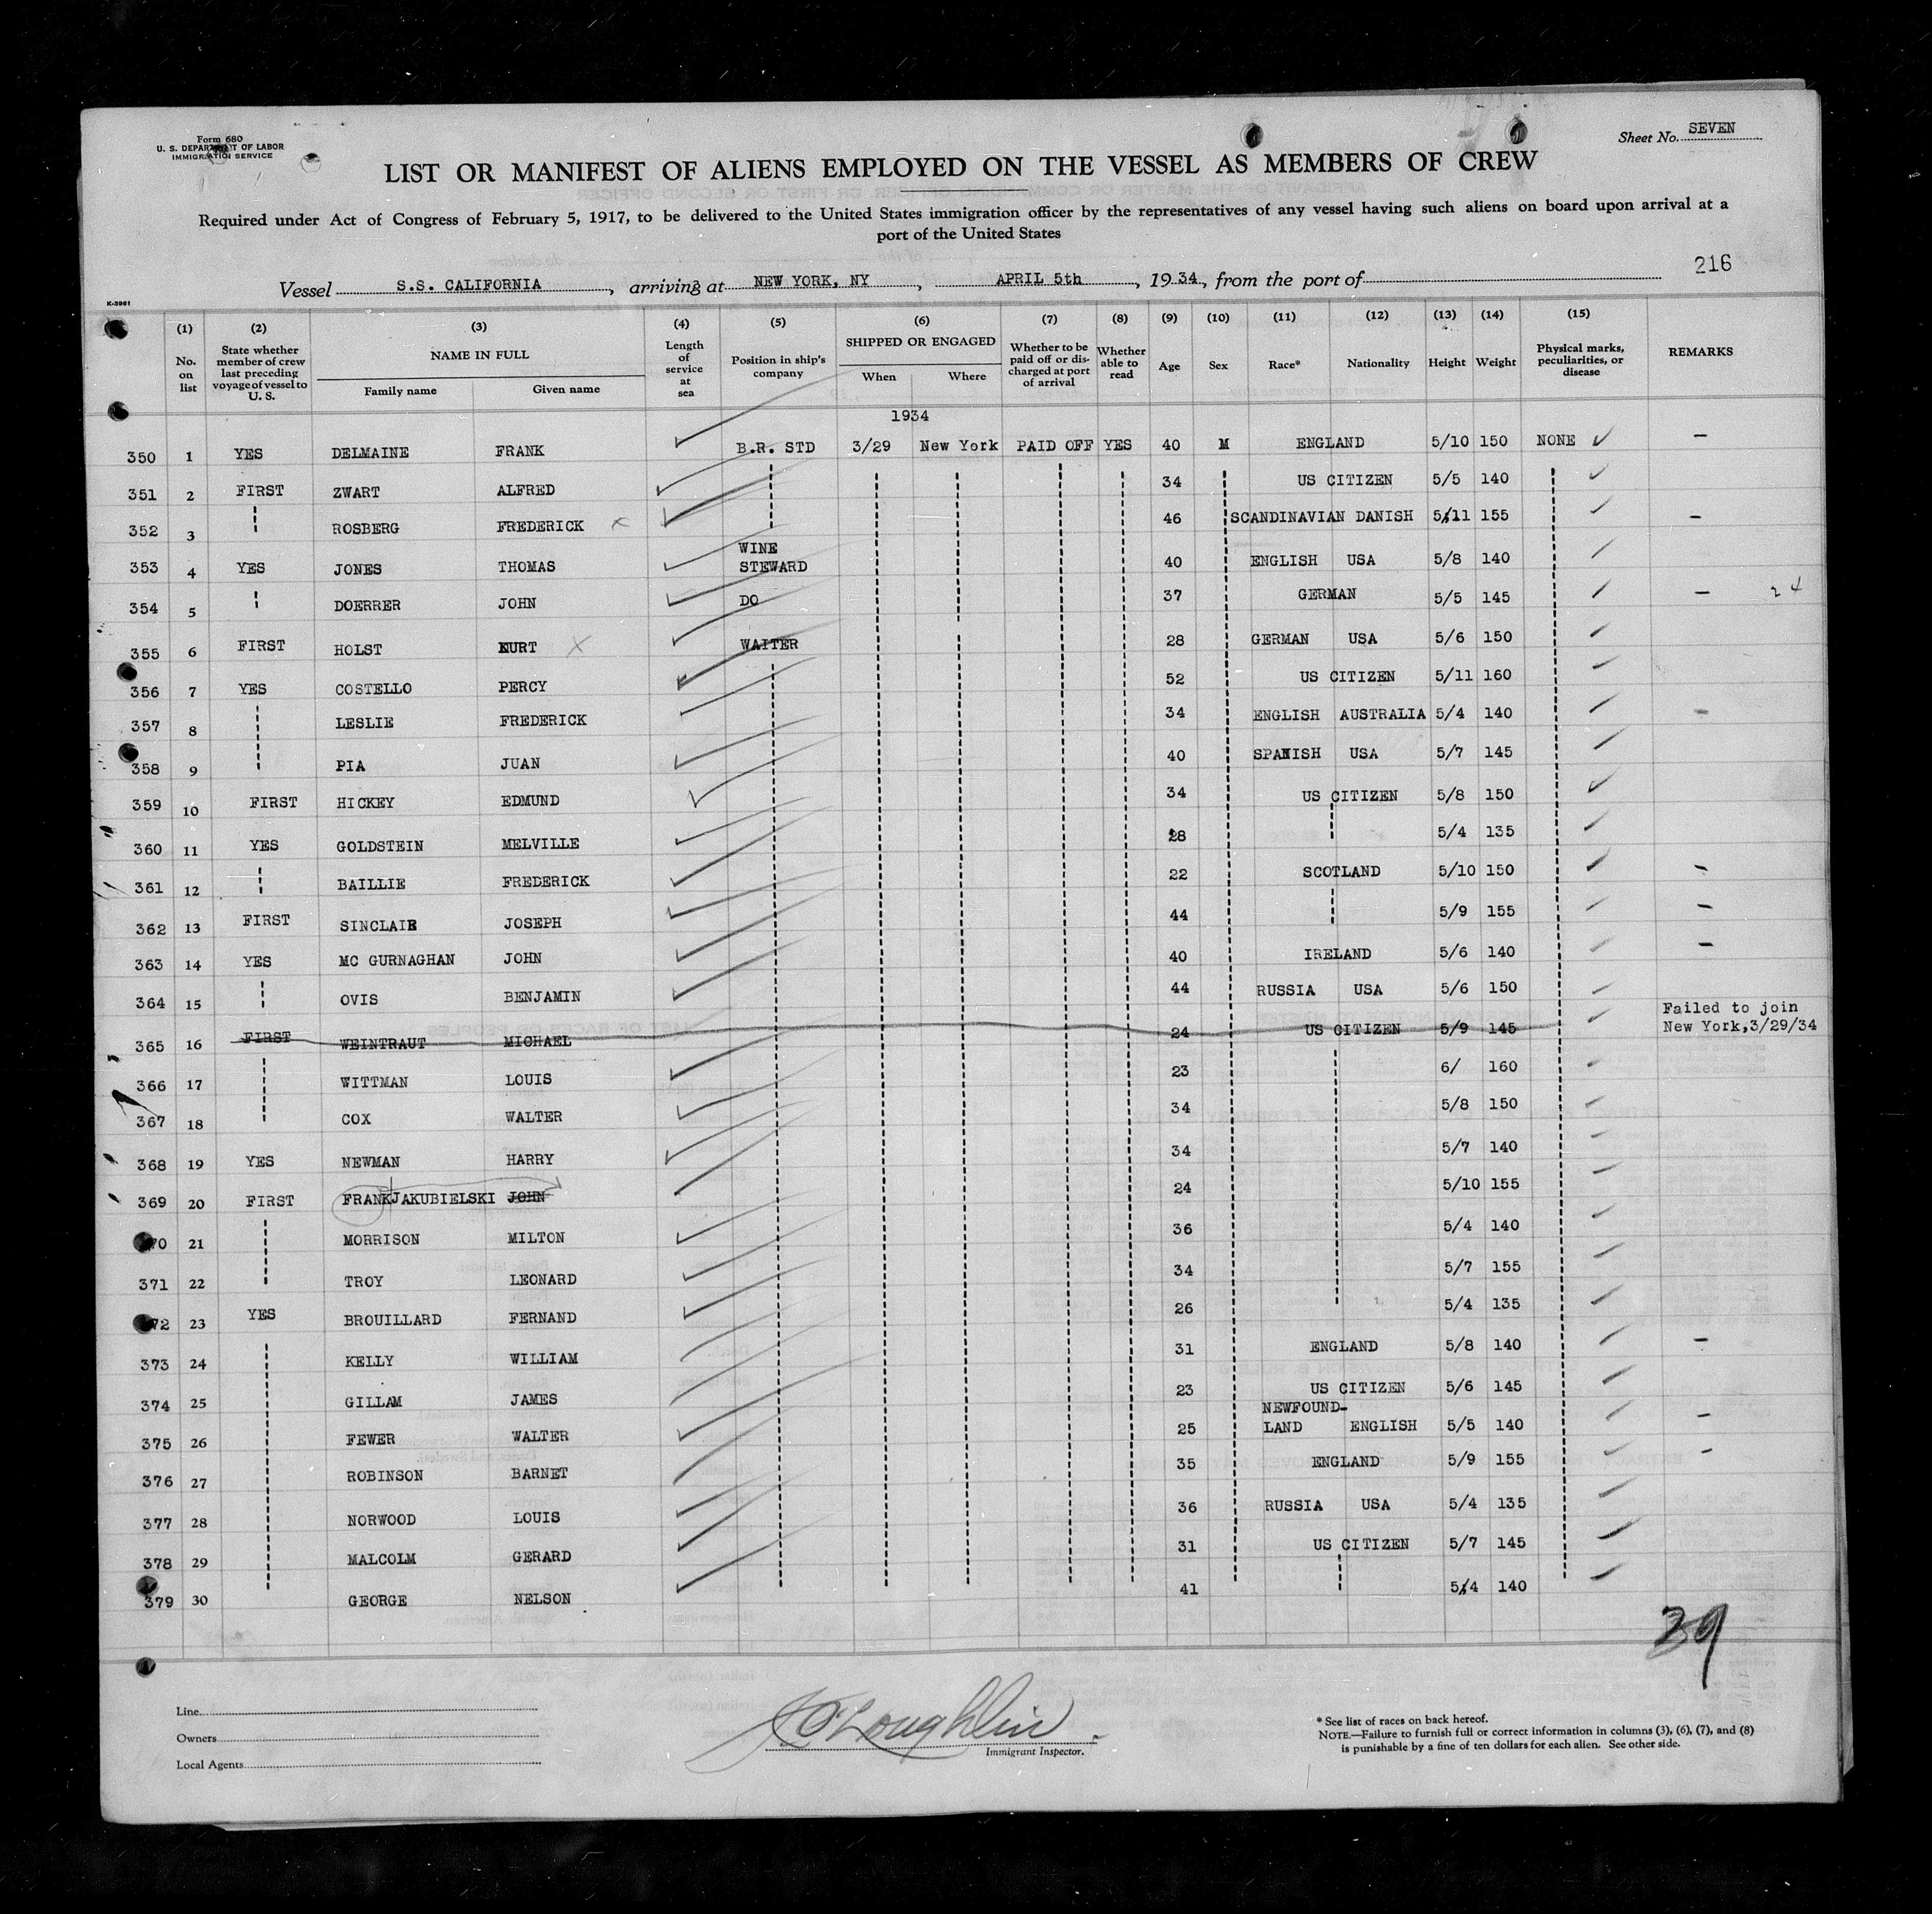 Form 680
U. S. DEPARTMENT OF LABOR
IMMIGRATION SERVICE
Sheet No. SEVEN
LIST OR MANIFEST OF ALIENS EMPLOYED ON THE VESSEL AS MEMBERS OF CREW
Required under Act of Congress of February 5, 1917, to be delivered to the United States immigration officer by the representatives of any vessel having such aliens on board upon arrival at a
port of the United States
216
Vessel S.S. CALIFORNIA, arriving at NEW YORK, NY, APRIL 5th, 1934, from the port of
K-3961
(1) (2) (3) (4) (5) (6) (7) (8) (9) (10) (11) (12) (13) (14) (15)
No. on list
State whether member of crew last preceding voyage of vessel to U. S.
NAME IN FULL
Family name Given name
Length of service at sea
Position in ship's company
SHIPPED OR ENGAGED
When Where
Whether to be paid off or discharged at port of arrival
Whether able to read
Age
Sex
Race*
Nationality
Height
Weight
Physical marks, peculiarities, or disease
REMARKS
1934
350 1 YES DELMAINE FRANK B.R. STD 3/29 New York PAID OFF YES 40 M ENGLAND 5/10 150 NONE —
351 2 FIRST ZWART ALFRED 34 US CITIZEN 5/5 140
352 3 ROSBERG FREDERICK x 46 SCANDINAVIAN DANISH 5/11 155 —
353 4 YES JONES THOMAS WINE STEWARD 40 ENGLISH USA 5/8 140
354 5 DOERRER JOHN DO 37 GERMAN 5/5 145 — 24
355 6 FIRST HOLST KURT x WAITER 28 GERMAN USA 5/6 150
356 7 YES COSTELLO PERCY 52 US CITIZEN 5/11 160
357 8 LESLIE FREDERICK 34 ENGLISH AUSTRALIA 5/4 140 —
358 9 PIA JUAN 40 SPANISH USA 5/7 145
359 10 FIRST HICKEY EDMUND 34 US CITIZEN 5/8 150
360 11 YES GOLDSTEIN MELVILLE 28 5/4 135
361 12 BAILLIE FREDERICK 22 SCOTLAND 5/10 150 —
362 13 FIRST SINCLAIR JOSEPH 44 5/9 155 —
363 14 YES MC GURNAGHAN JOHN 40 IRELAND 5/6 140 —
364 15 OVIS BENJAMIN 44 RUSSIA USA 5/6 150
365 16 FIRST WEINTRAUT MICHAEL 24 US CITIZEN 5/9 145 Failed to join New York,3/29/34
366 17 WITTMAN LOUIS 23 6/ 160
367 18 COX WALTER 34 5/8 150
368 19 YES NEWMAN HARRY 34 5/7 140
369 20 FIRST FRANK JAKUBIELSKI JOHN 24 5/10 155
370 21 MORRISON MILTON 36 5/4 140
371 22 TROY LEONARD 34 5/7 155
372 23 YES BROUILLARD FERNAND 26 5/4 135
373 24 KELLY WILLIAM 31 ENGLAND 5/8 140 —
374 25 GILLAM JAMES 23 US CITIZEN 5/6 145
375 26 FEWER WALTER 25 NEWFOUND-LAND ENGLISH 5/5 140 —
376 27 ROBINSON BARNET 35 ENGLAND 5/9 155 —
377 28 NORWOOD LOUIS 36 RUSSIA USA 5/4 135
378 29 MALCOLM GERARD 31 US CITIZEN 5/7 145
379 30 GEORGE NELSON 41 5/4 140
39
Line
Owners
Local Agents
O'Loughlin
Immigrant Inspector.
* See list of races on back hereof.
NOTE.—Failure to furnish full or correct information in columns (3), (6), (7), and (8)
is punishable by a fine of ten dollars for each alien. See other side.